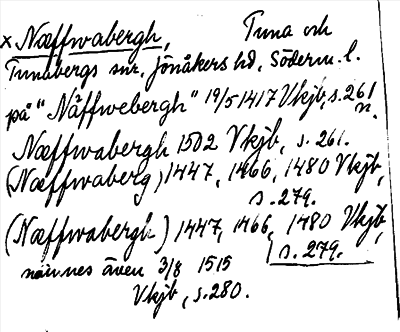 x Næffwabergh, Tuna och
Tunabergs snr, Jönåkers hd, Söderm. l.
på "Näffwebergh" 19/5 1417 Vkjb, s. 261
n.
Næffwabergh 1502 Vkjb, s. 261.
(Næffwaberg) 1447, 1466, 1480 Vkjb,
s. 279.
(Næffwabergh) 1447, 1466, 1480 Vkjb,
s. 279.
nämnes även 3/8 1515
Vkjb, s. 280.